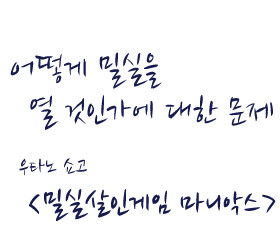 어떻게 밀실을
열 것인가에 대한 문제
우타노 쇼고
<밀실살인게임 마니악스>